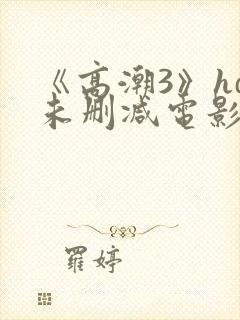 《高潮3》hd
未删减电影
羅婷